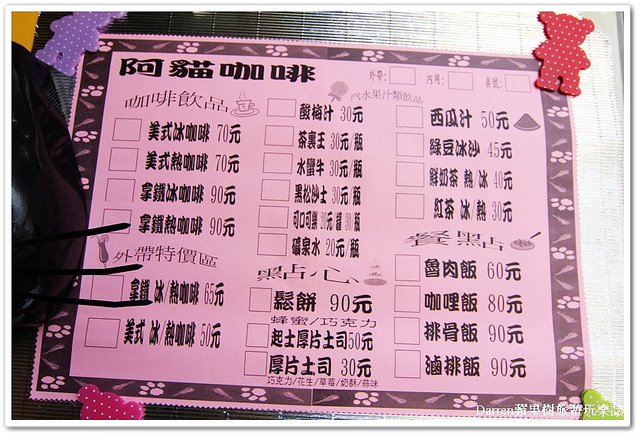 阿貓咖啡
外帶: 內用: 桌號:
咖啡飲品
美式冰咖啡 70元
美式熱咖啡 70元
拿鐵冰咖啡 90元
拿鐵熱咖啡 90元
外帶特價區
拿鐵 冰/熱咖啡 65元
美式 冰/熱咖啡 50元
汽水果汁類飲品
酸梅汁 30元
茶裏王 30元/瓶
水蠻牛 30元/瓶
黑松沙士 30元/瓶
礦泉水 20元/瓶
西瓜汁 50元
綠豆冰沙 45元
鮮奶茶 熱/冰 40元
紅茶 冰/熱 30元
點心
鬆餅 90元
蜂蜜/巧克力
起士厚片土司50元
厚片土司 30元
巧克力/花生/草莓/奶酥/蒜味
餐點
魯肉飯 60元
咖哩飯 80元
排骨飯 90元
滷排飯 90元
Darren蘋果樹旅遊玩樂誌